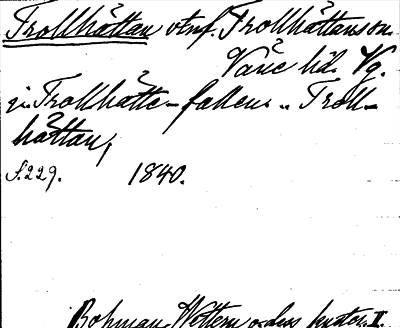 Trollhättan vtnf. Trollhättan son
Väne hd. Vg.
i Trollhätte-fallen „ Troll-
hättan,
S. 229. 1840.
Bohman, Wettern o. dess kuster. II.